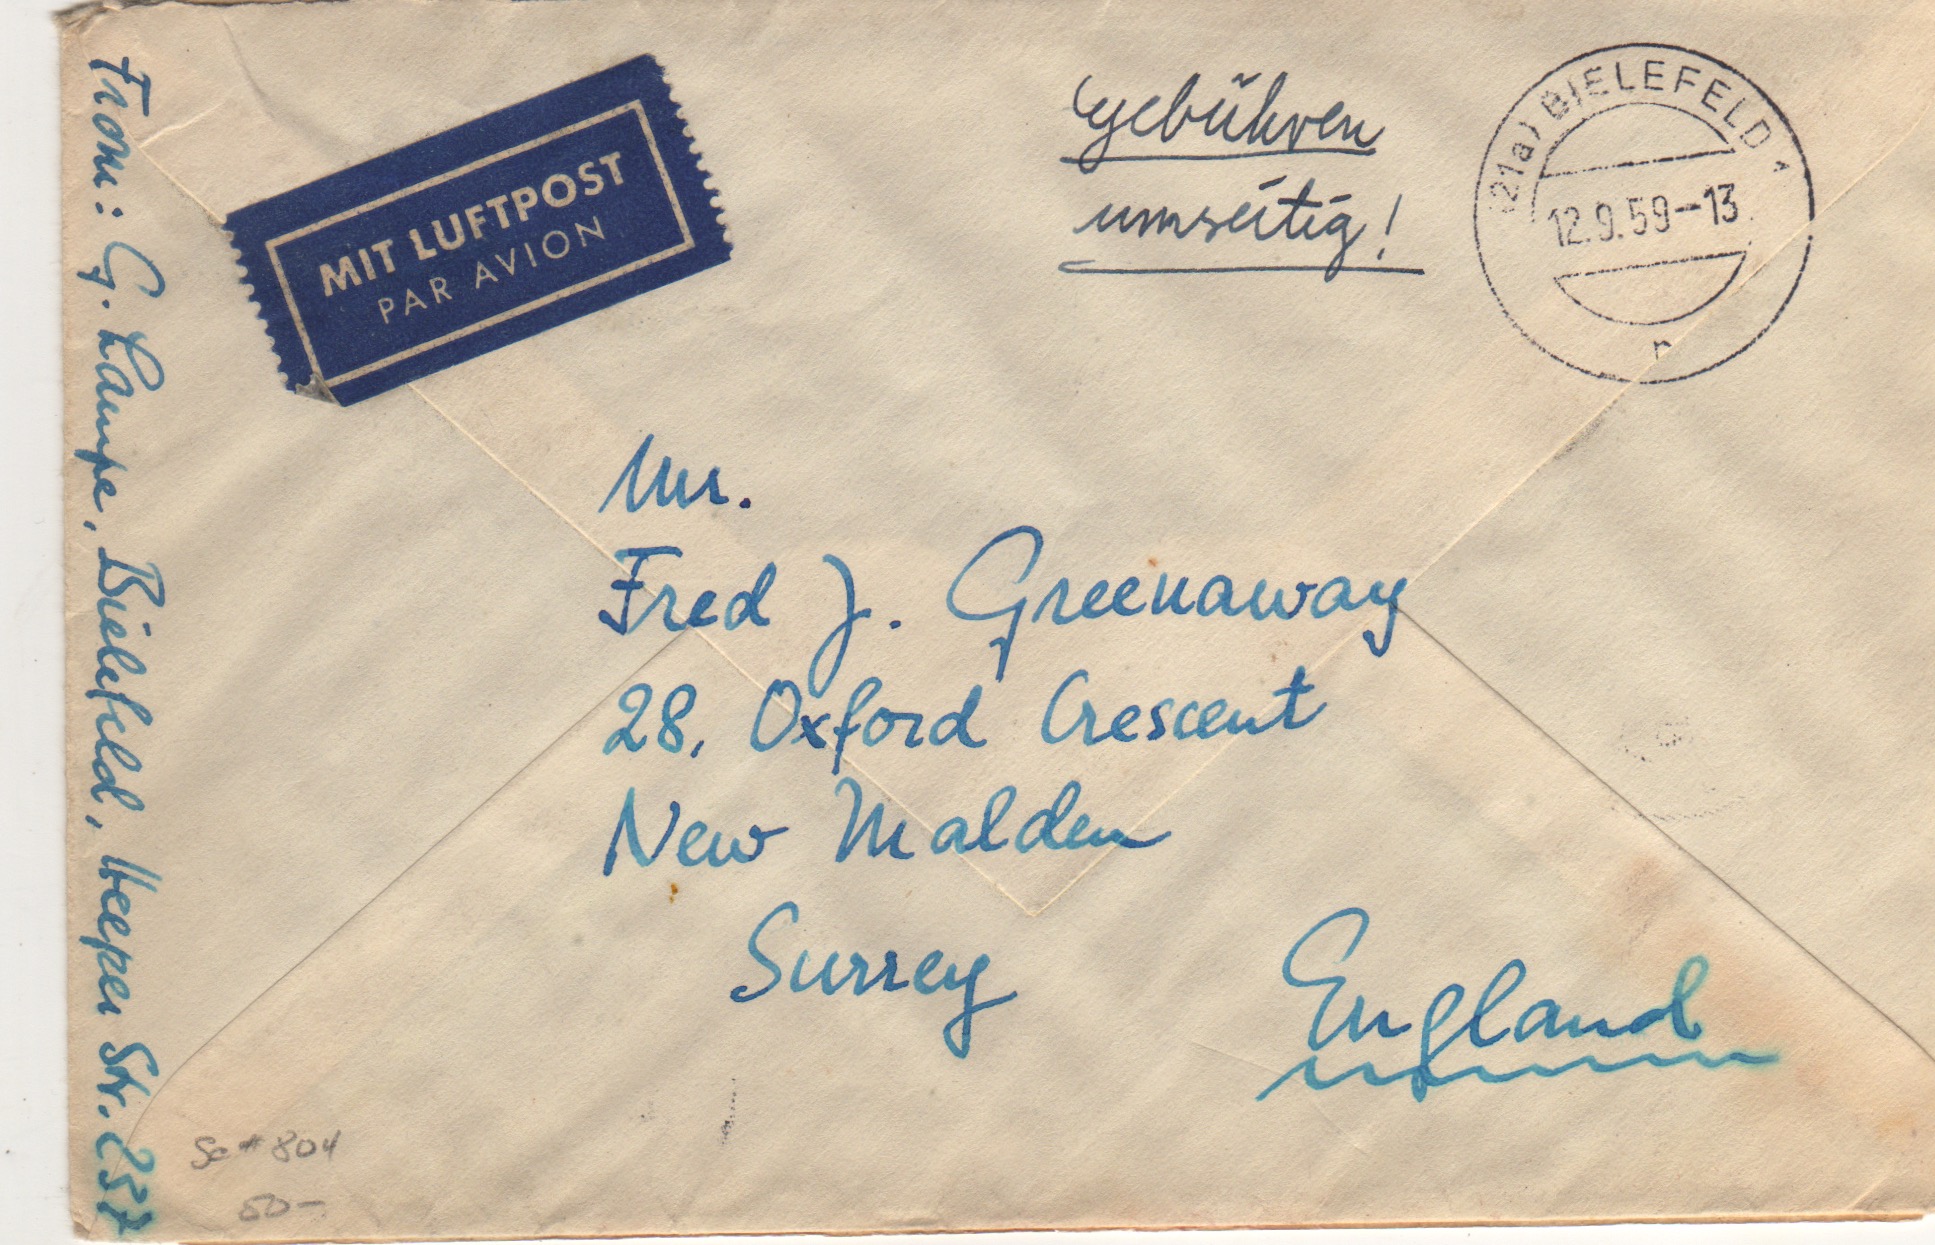 From: G. Lampe, Bielefeld, Heeper Str. 237
MIT LUFTPOST
PAR AVION
Gebühren
umseitig!
(21a) BIELEFELD 1
12.9.59-13
n
Mr.
Fred J. Greenaway
28, Oxford Crescent
New Malden
Surrey
England
Sc # 804
50-